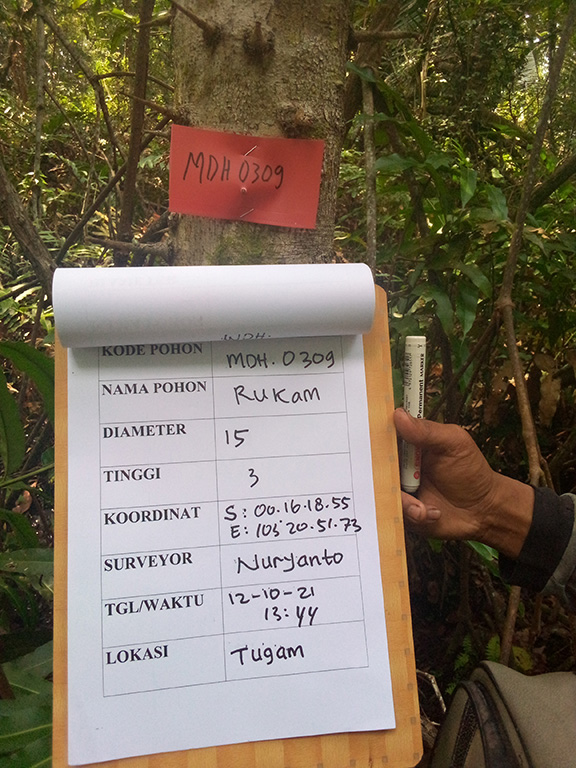 MDH 0309
KODE POHON MDH. 0309
NAMA POHON Rukam
DIAMETER 15
TINGGI 3
KOORDINAT S : 00.16.18.55
E : 103.20.51.73
SURVEYOR Nuryanto
TGL/WAKTU 12-10-21
13:44
LOKASI Tugam
Permanent MARKER